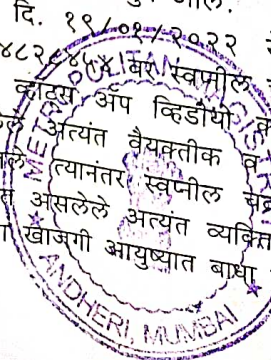 दि. १९/०१/२०२२
वर स्वप्नील
व्हाट्स ॲप व्हिडीयो
अत्यंत वैयक्तीक व
त्यानंतर स्वप्नील
असलेले अत्यंत व्यक्ति
खाजगी आयुष्यात बाधा
METROPOLITAN MAGISTR
ANDHERI, MUMBAI